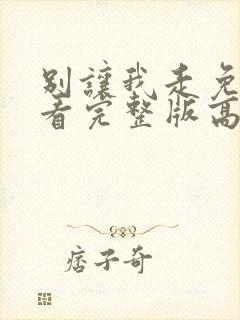 别讓我走免
看完整版高
痞子奇